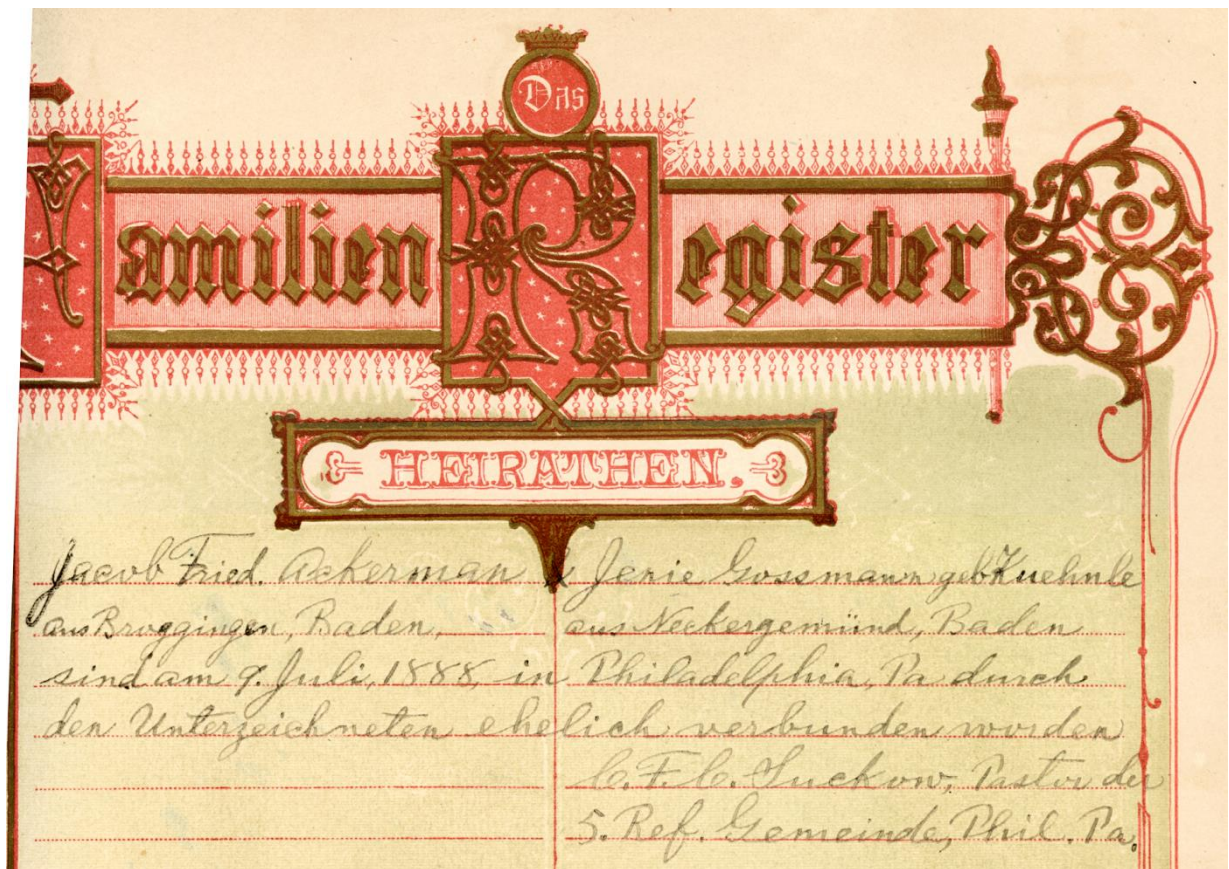 Das
Familien Register
HEIRATHEN.
Jacob Fried. Ackerman & Jenie Gossmann geb Kuehnle
aus Broggingen, Baden, aus Neckergemünd, Baden
sind am 9. Juli, 1888, in Philadelphia, Pa durch
den Unterzeichneten ehelich verbunden worden
C. F. C. Suckow, Pastor der
5. Ref. Gemeinde, Phil. Pa.